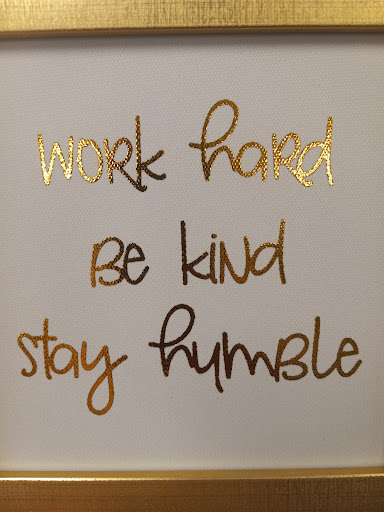 work hard
Be kind
stay humble